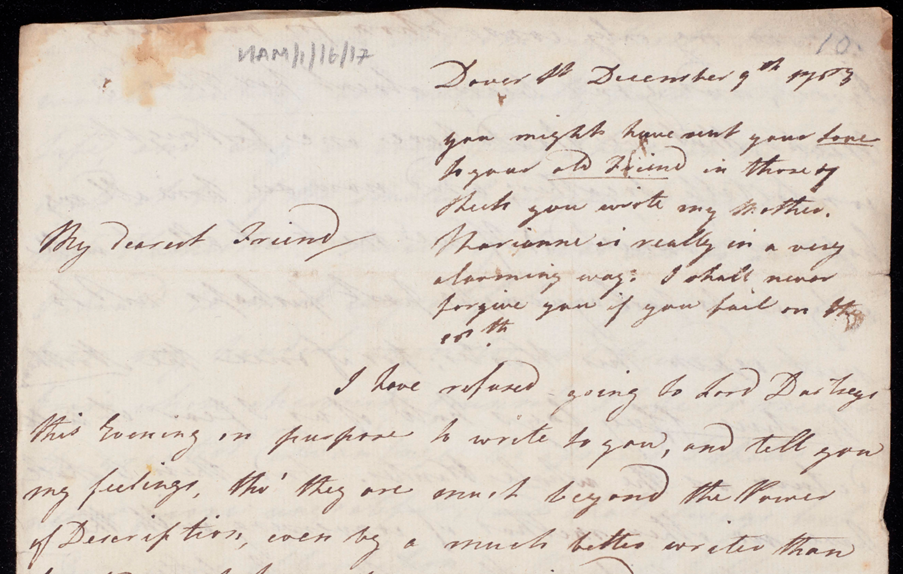 HAM/1/16/17
10.
Dover St December 9th 1783
you might have sent your love
to your old Friend in those of
Sheets you wrote my Mother.
Marianne is really in a very
alarming way: I shall never
forgive you if you fail on the
My dearest Friend
I have refused going to Lord Dartreys
this Evening on purpose to write to you, and tell you
my feelings, tho' they are much beyond the Power
of Description, even by a much better writer than